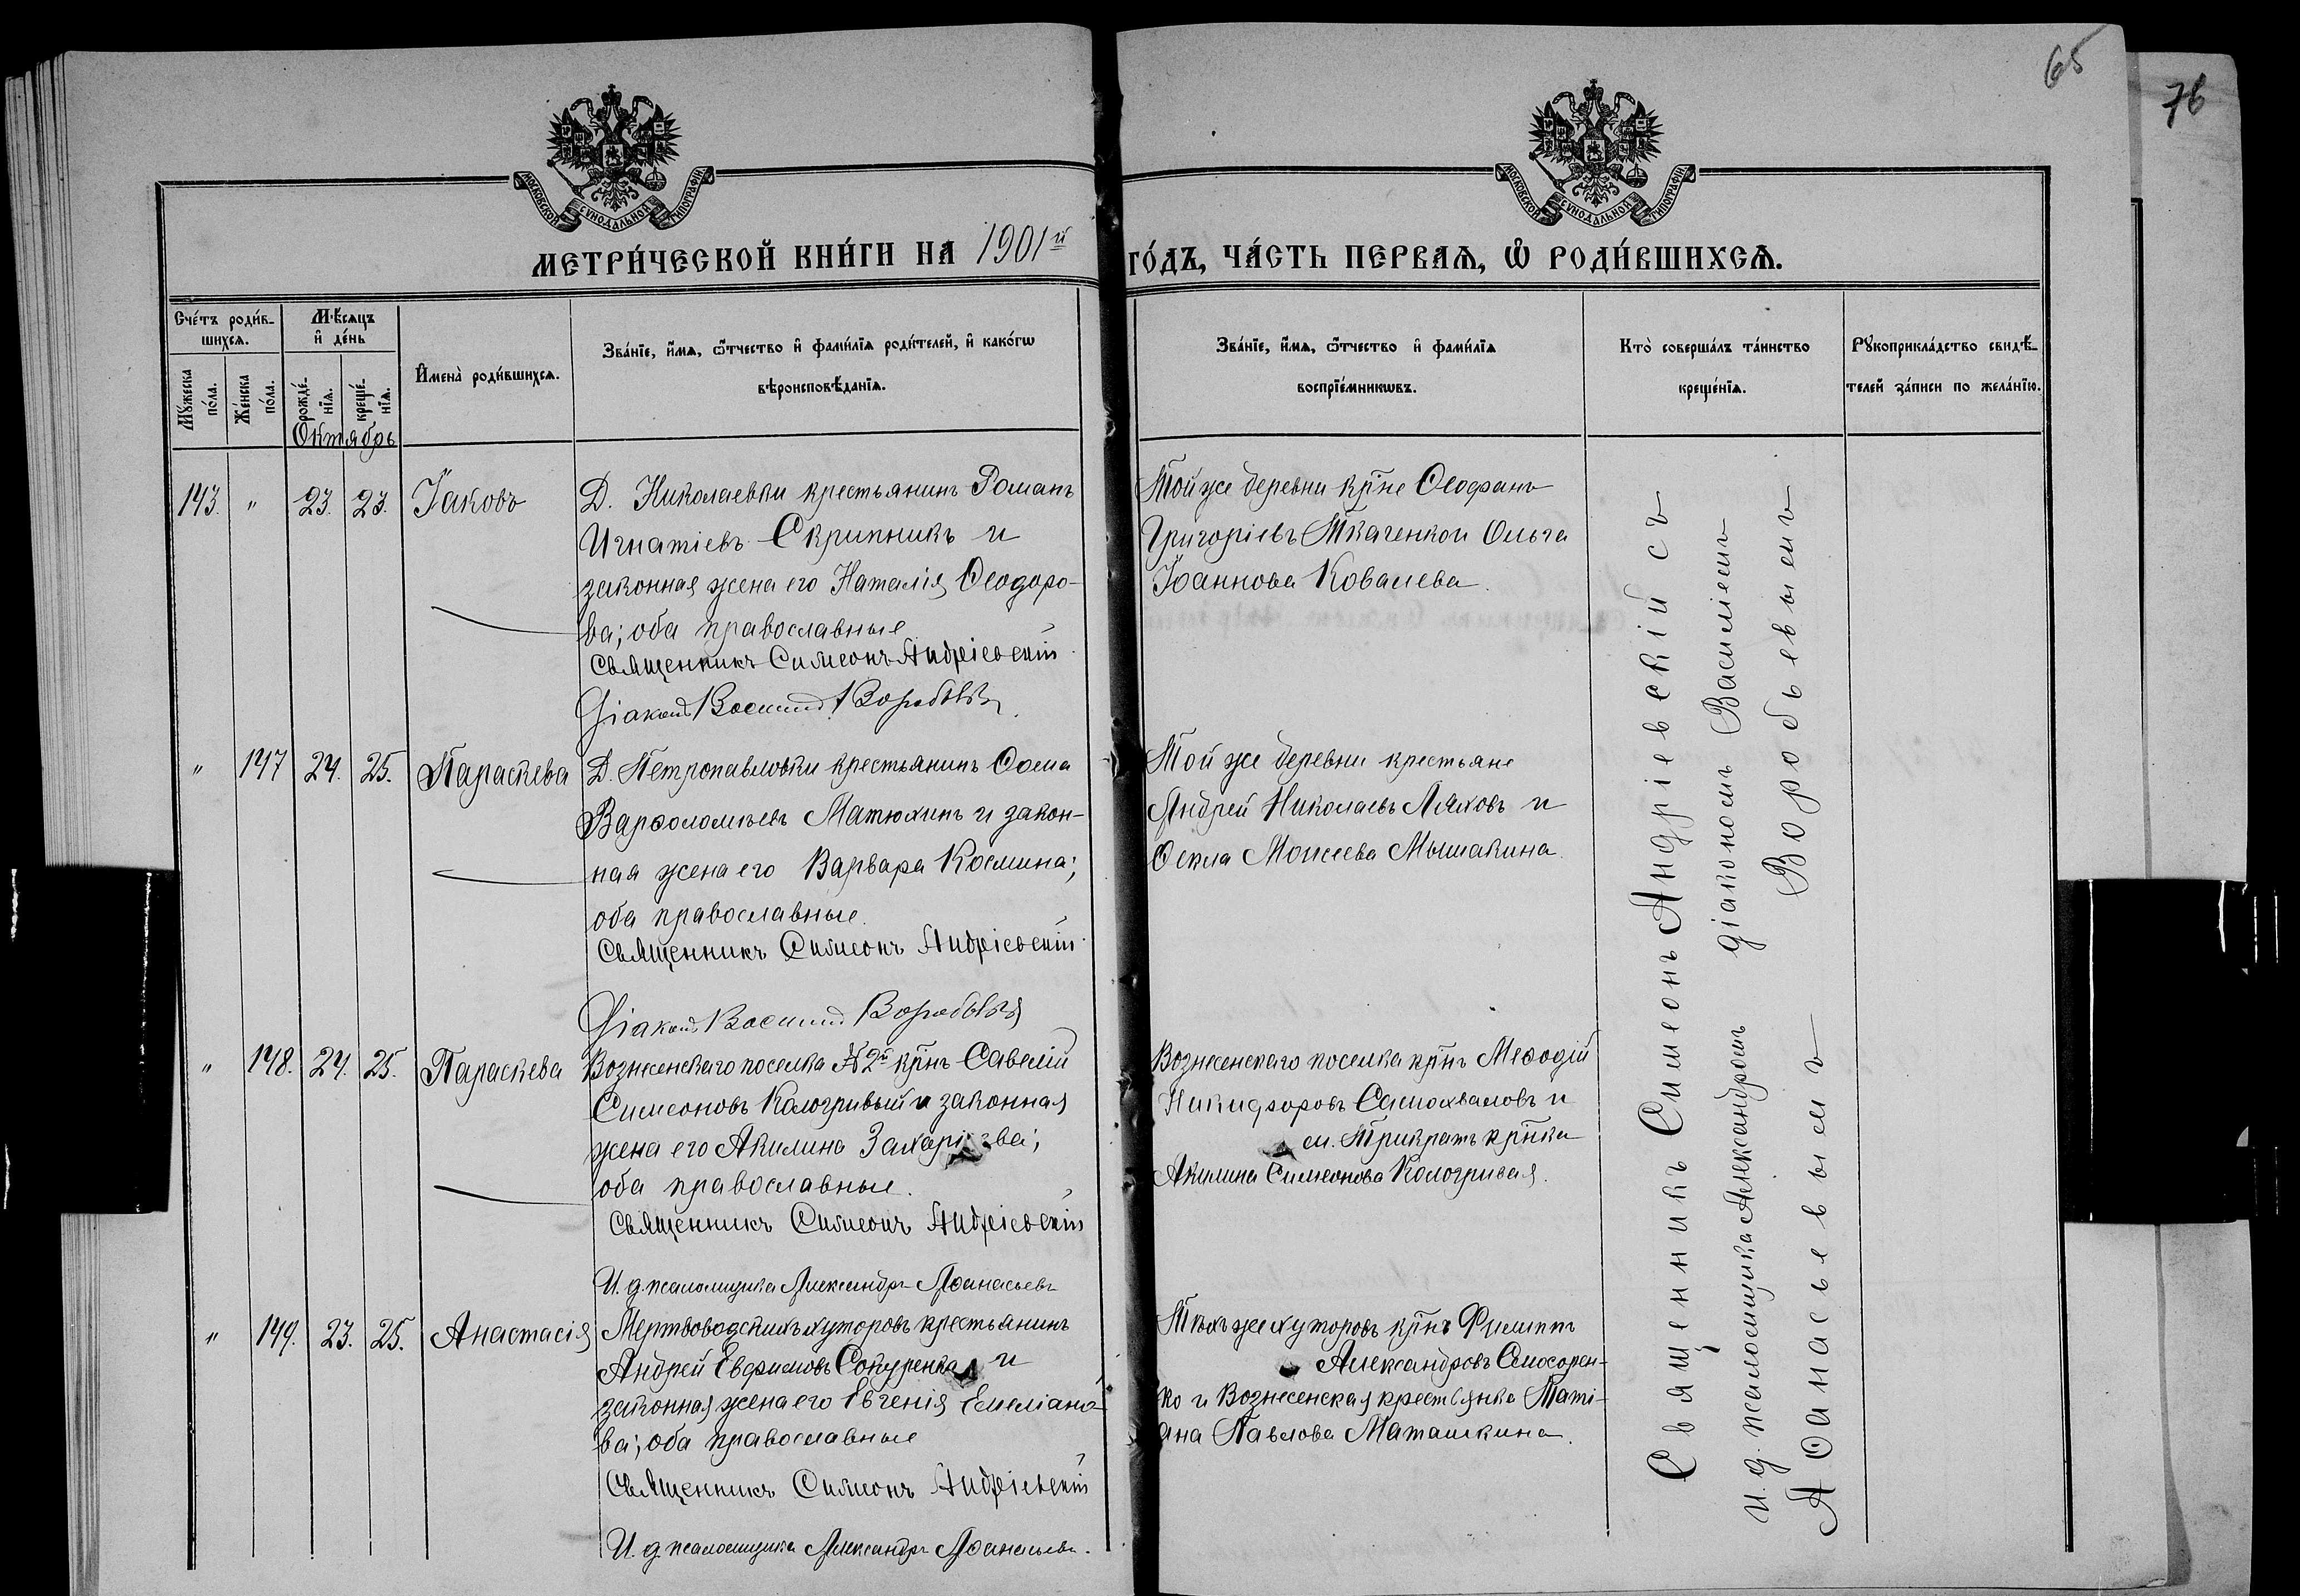 65
76
МОСКОВСКОЙ СѴНОДАЛЬНОЙ ТИПОГРАФІИ
МОСКОВСКОЙ СѴНОДАЛЬНОЙ ТИПОГРАФІИ
МЕТРИ́ЧЕСКОЙ КНИ́ГИ НА 1901й ГО́ДЪ, ЧА́СТЬ ПЕРВАѦ, Ѡ҆ РОДИ́ВШИХСѦ.
Сче́тъ роди́в-
шихсѧ.
Мꙋ́жеска по́ла.
Же́нска по́ла.
Мѣ́сѧцъ
и҆ де́нь
рожде́-
нїѧ.
креще́-
нїѧ.
И҆мена̀ роди́вшихсѧ.
Зва́нїе, и҆́мѧ, ѻ҆́тчество и҆ фами́лїѧ роди́телей, и҆ како́гѡ
вѣроисповѣ́данїѧ.
Зва́нїе, и҆́мѧ, ѻ҆́тчество и҆ фами́лїѧ
воспрїе́мникѡвъ.
Кто̀ соверша́лъ та́инство
креще́нїѧ.
Рꙋкоприкла́дство свидѣ́-
телей за́писи по жела́нїю.
Октябрь
143. " 23. 23. Іаковъ
Д. Николаевки крестьянинъ Романъ
Игнатіевъ Скрипникъ и
законная жена его Наталія Ѳеодоро-
ва; оба православные
Священникъ Симеонъ Андріевскій
Діаконъ Василій Воробьевъ
Той же деревни кр̃не Ѳеофанъ
Григоріевъ Ткаченко и Ольга
Іоаннова Ковалева.
" 147 24. 25. Параскева
Д. Петропавловки крестьянинъ Ѳома
Варѳоломѣевъ Матюхинъ и закон-
ная жена его Варвара Космина;
оба православные.
Священникъ Симеонъ Андріевскій
Діаконъ Василій Воробьевъ
Той же деревни крестьяне
Андрей Николаевъ Ляховъ и
Ѳекла Моисеева Мышакина.
" 148. 24. 25. Параскева
Вознесенскаго поселка № 2й кр̃нъ Савелій
Симеоновъ Кологривый и законная
жена его Акилина Захаріева;
оба православные.
Священникъ Симеонъ Андріевскій
И. д. псаломщика Александръ Аѳанасьевъ
Вознесенскаго поселка кр̃нъ Меѳодій
Никифоровъ Самохваловъ и
м. Трикратъ кр̃нка
Акилина Симеонова Кологривая.
" 149. 23. 25. Анастасія
Мертвоводскихъ хуторовъ крестьянинъ
Андрей Евфимовъ и
законная жена его Евгенія Емеліано-
ва; оба православные
Священникъ Симеонъ Андріевскій
И. д. псаломщика Александръ Аѳанасьевъ.
Тѣхъ же хуторовъ кр̃нъ Филиппъ
Александровъ Слюсарен-
ко и Вознесенская крестьянка Таті-
ана Павлова Маташкина.
Священникъ Симеонъ Андріевскій съ
діакономъ Василіемъ
Воробьевымъ
и. д. псаломщика Александромъ
Аѳанасьевымъ